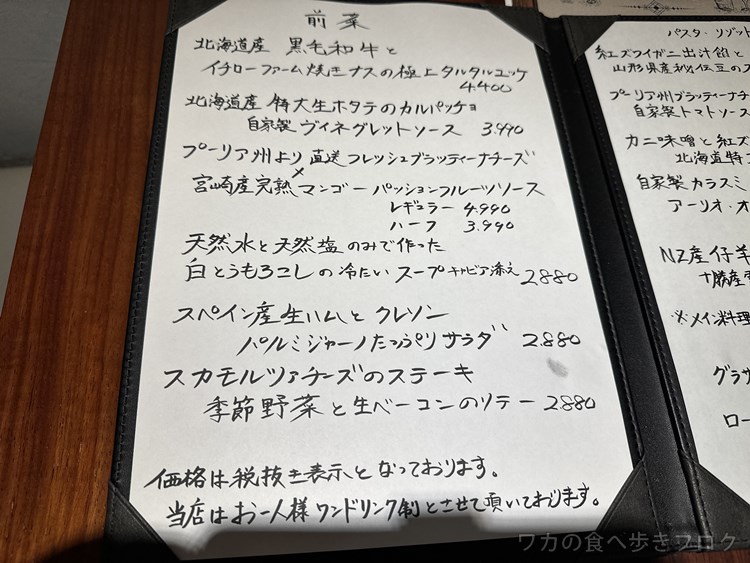 前菜
北海道産 黒毛和牛と
イチローファーム焼きナスの極上タルタルユッケ
4.400
北海道産 特大生ホタテのカルパッチョ
自家製 ヴィネグレットソース 3.990
プーリア州より直送フレッシュブラッティーナチーズ
×
宮崎産完熟マンゴー パッションフルーツソース
レギュラー 4.990
ハーフ 3.990
天然水と天然塩のみで作った
白とうもろこしの冷たいスープ キャビア添え 2.880
スペイン産生ハムと クレソン
パルミジャーノたっぷりサラダ 2.880
スカモルツァチーズのステーキ
季節野菜と生ベーコンのソテー 2.880
価格は税抜き表示となっております。
当店はお一人様ワンドリンク制とさせて頂いております。
パスタ・リゾット
紅ズワイガニ出汁餡と
山形県産秘伝豆の
プーリア州ブラッティーナチ
自家製トマトソース
カニ味噌と紅ズ
北海道特
自家製カラスミ
アーリオ・オ
NZ産仔羊
十勝産
※メイン料理
グラサ
ロー
ワカの食べ歩きブログ